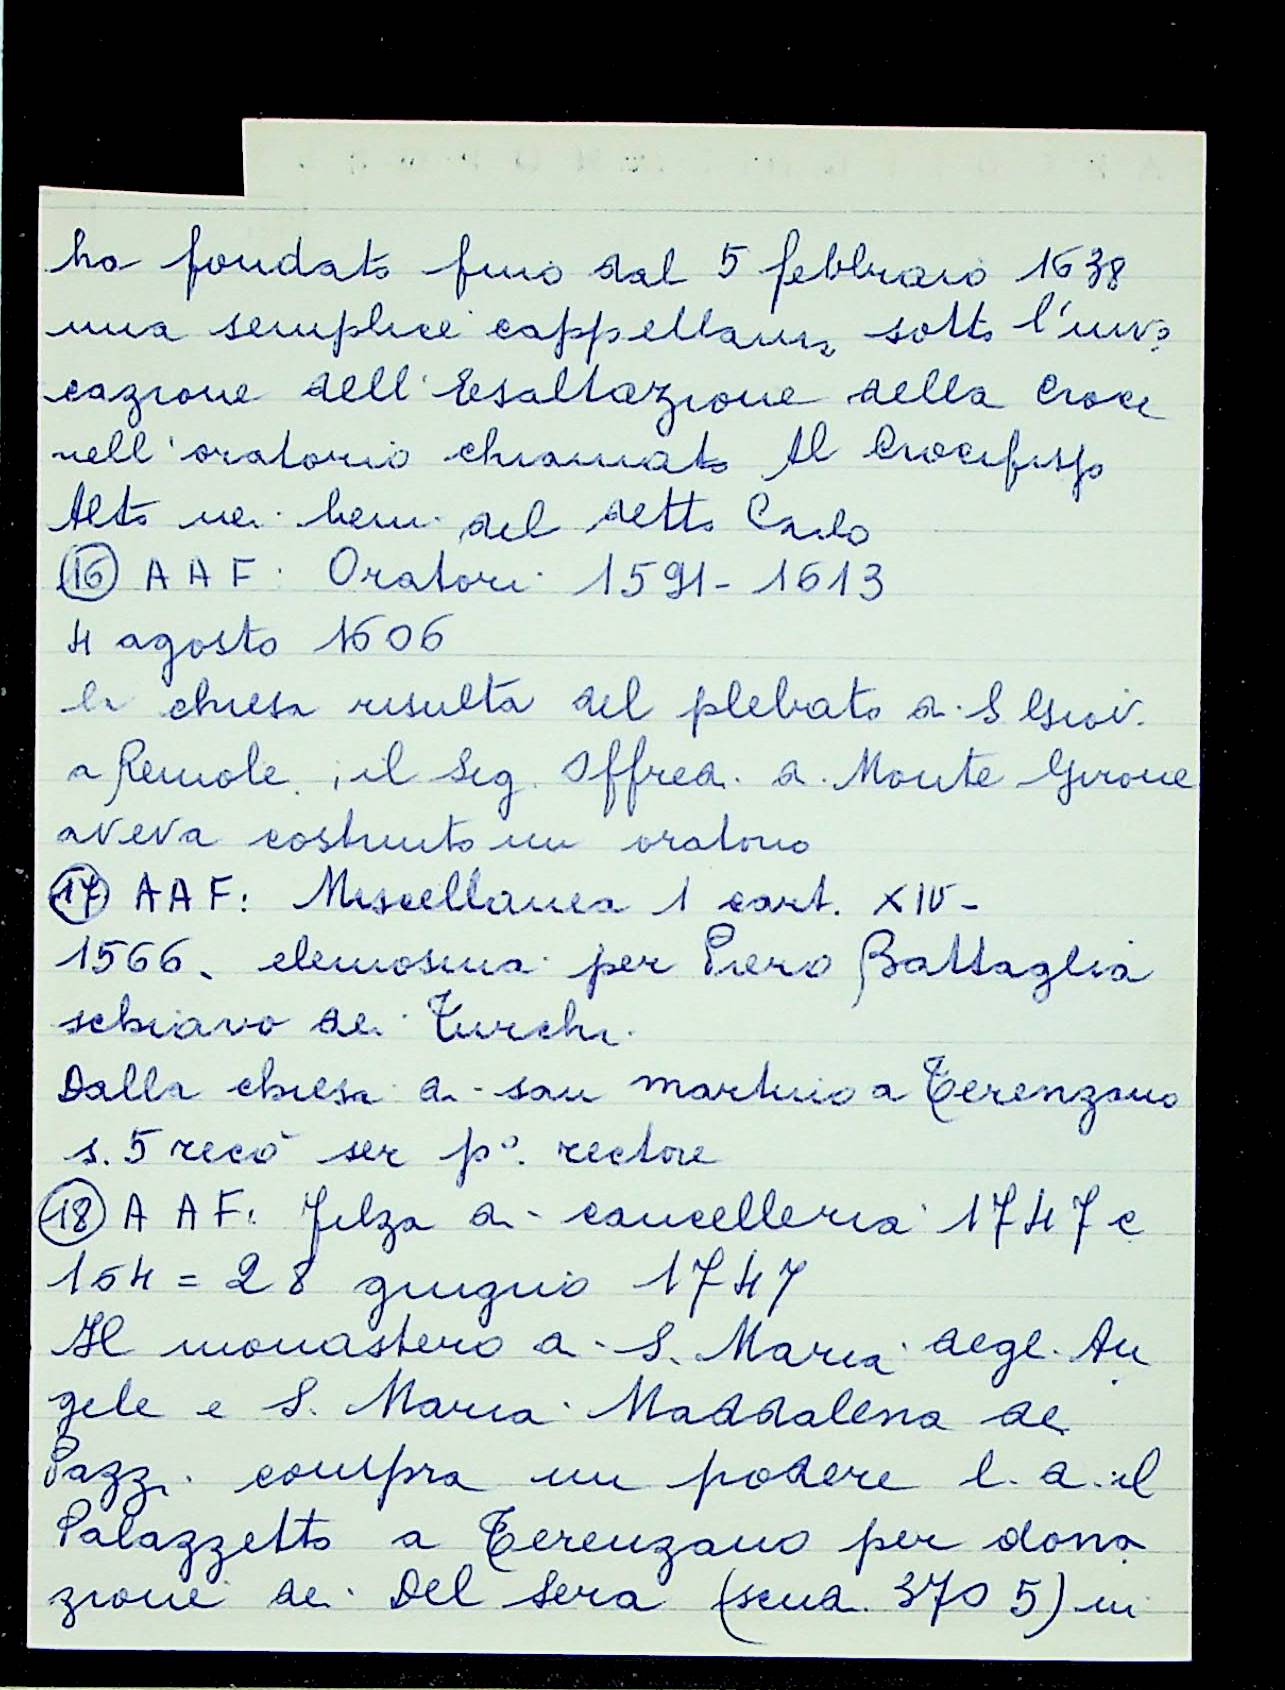 ha fondato fino dal 5 febbraio 1638
una semplice cappellania sotto l'invo
cazione dell'Esaltazione della Croce
nell'oratorio chiamato Al Crocifisso
Alto nei beni del detto Carlo
16 AAF: Oratori 1591-1613
4 agosto 1606
la chiesa risulta del plebato di S Giov.
a Remole, il Sig. Offredi di Monte Girone
aveva costruito un oratorio
17 AAF: Miscellanea 1 cart. XIV-
1566. elemosina per Piero Battaglia
schiavo dei Turchi.
Dalla chiesa di san martino a Terenzano
s. 5 recò ser p°. rectore
18 AAF: Filza di cancelleria 1747 c
154 = 28 giugno 1747
Il monastero di S. Maria degli An
gele e S. Maria Maddalena de
Pazzi compra un podere l. d. il
Palazzetto a Terenzano per dona
zione dei Del Sera (scud. 3705) in